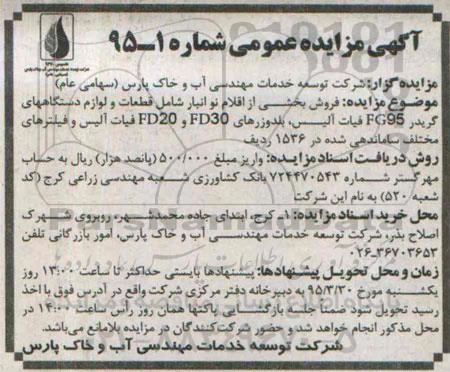 آگهی مزایده عمومی شماره ۱ـ۹۵
مزایده گزار: شرکت توسعه خدمات مهندسی آب و خاک پارس (سهامی عام)
موضوع مزایده: فروش بخشی از اقلام نو انبار شامل قطعات و لوازم دستگاههای
گریدر FG95 فیات آلیس، بلدوزرهای FD30 و FD20 فیات آلیس و فیلترهای
مختلف ساماندهی شده در ۱۵۳۶ ردیف
روش دریافت اسناد مزایده: واریز مبلغ ۵۰۰/۰۰۰ (پانصد هزار) ریال به حساب
مهرگستر شماره ۷۲۴۴۷۰۵۴۳ بانک کشاورزی شعبه مهندسی زراعی کرج (کد
شعبه ۵۲۰) به نام این شرکت
محل خرید اسناد مزایده: ۱ـ کرج، ابتدای جاده محمدشهر، روبروی شهرک
اصلاح بذر، شرکت توسعه خدمات مهندسی آب و خاک پارس، امور بازرگانی تلفن
۰۲۶-۳۶۷۰۳۶۵۳
زمان و محل تحویل پیشنهادها: پیشنهادها بایستی حداکثر تا ساعت ۱۳:۰۰ روز
یکشنبه مورخ ۹۵/۳/۳۰ به دبیرخانه دفتر مرکزی شرکت واقع در آدرس فوق با اخذ
رسید تحویل شود ضمناً جلسه بازگشایی پاکتها همان روز راس ساعت ۱۴:۰۰ در
محل مذکور انجام خواهد شد و حضور شرکت‌کنندگان در مزایده بلامانع می‌باشد.
شرکت توسعه خدمات مهندسی آب و خاک پارس